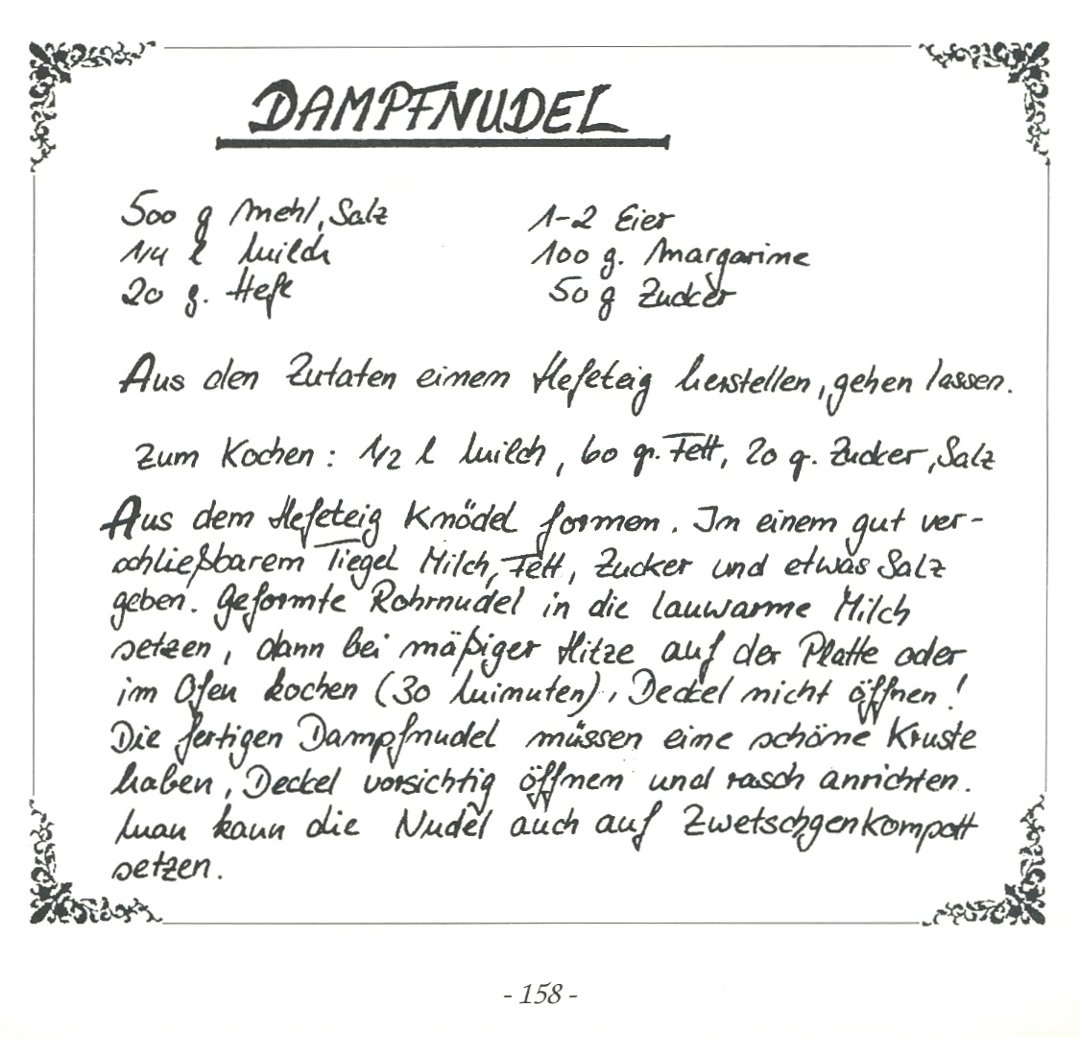 DAMPFNUDEL
500 g Mehl, Salz
1/4 l Milch
20 g. Hefe
1-2 Eier
100 g. Margarine
50 g Zucker
Aus den Zutaten einem Hefeteig herstellen, gehen lassen.
Zum Kochen: 1/2 l Milch, 60 gr. Fett, 20 g. Zucker, Salz
Aus dem Hefeteig Knödel formen. In einem gut ver-
schließbarem Tiegel Milch, Fett, Zucker und etwas Salz
geben. Geformte Rohrnudel in die lauwarme Milch
setzen, dann bei mäßiger Hitze auf der Platte oder
im Ofen kochen (30 Minuten), Deckel nicht öffnen!
Die fertigen Dampfnudel müssen eine schöne Kruste
haben, Deckel vorsichtig öffnen und rasch anrichten.
Man kann die Nudel auch auf Zwetschgenkompott
setzen.
- 158 -